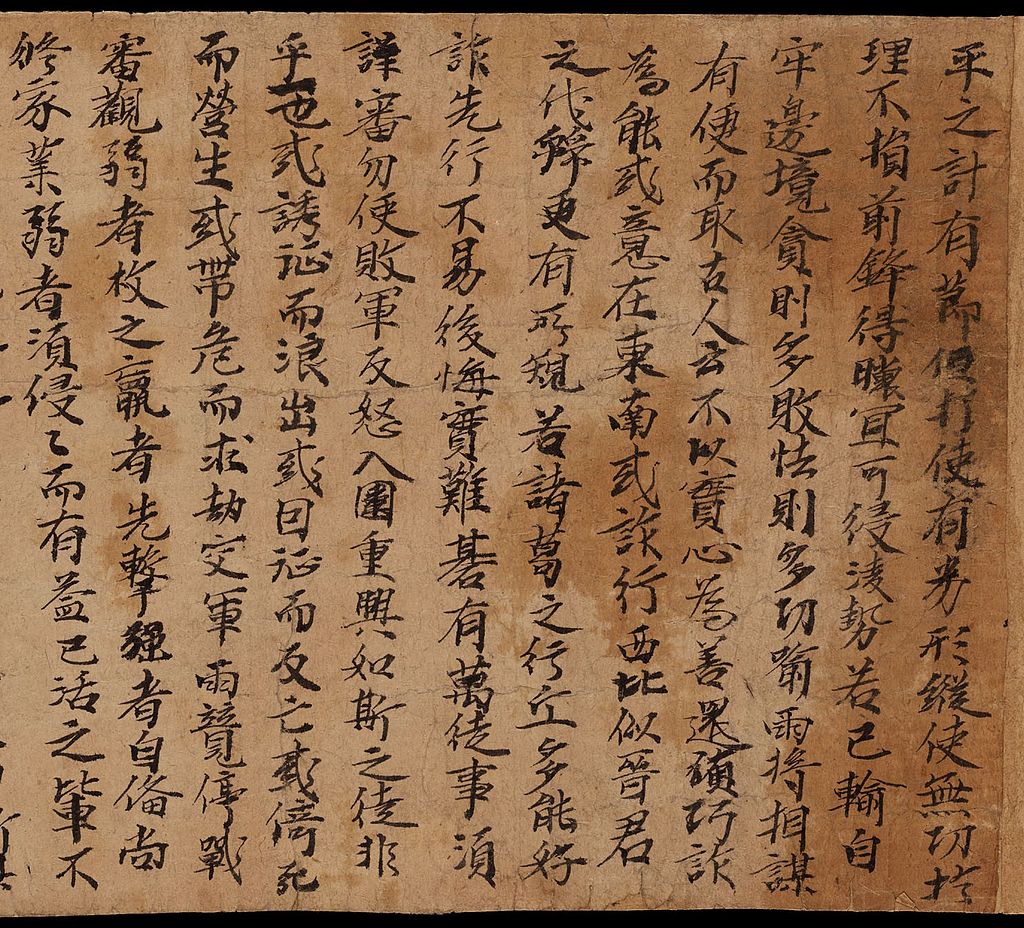 乎之計有節但打使有勞形縱使無功於
理不損前鋒得曉冝可侵淩勢若已輸自
牢邊境貪則多敗怯則多功喻兩將相謀
有便而取古人云不以實心為善還須巧詐
為能或意在東南或詐行西北似晉君
之伐虢更有所窺若諸葛之行丘多能好
詐先行不易後悔實難碁有萬徒事須
謹審勿使敗軍反怒入圍重興如斯之徒非
乎一也或誘征而浪出或因征而反亡或倚死
而營生或帶危而求劫交軍兩競停戰
審觀弱者枚之羸者先擊強者自俻尚
修家業弱者須侵〻而有益已活之輩不